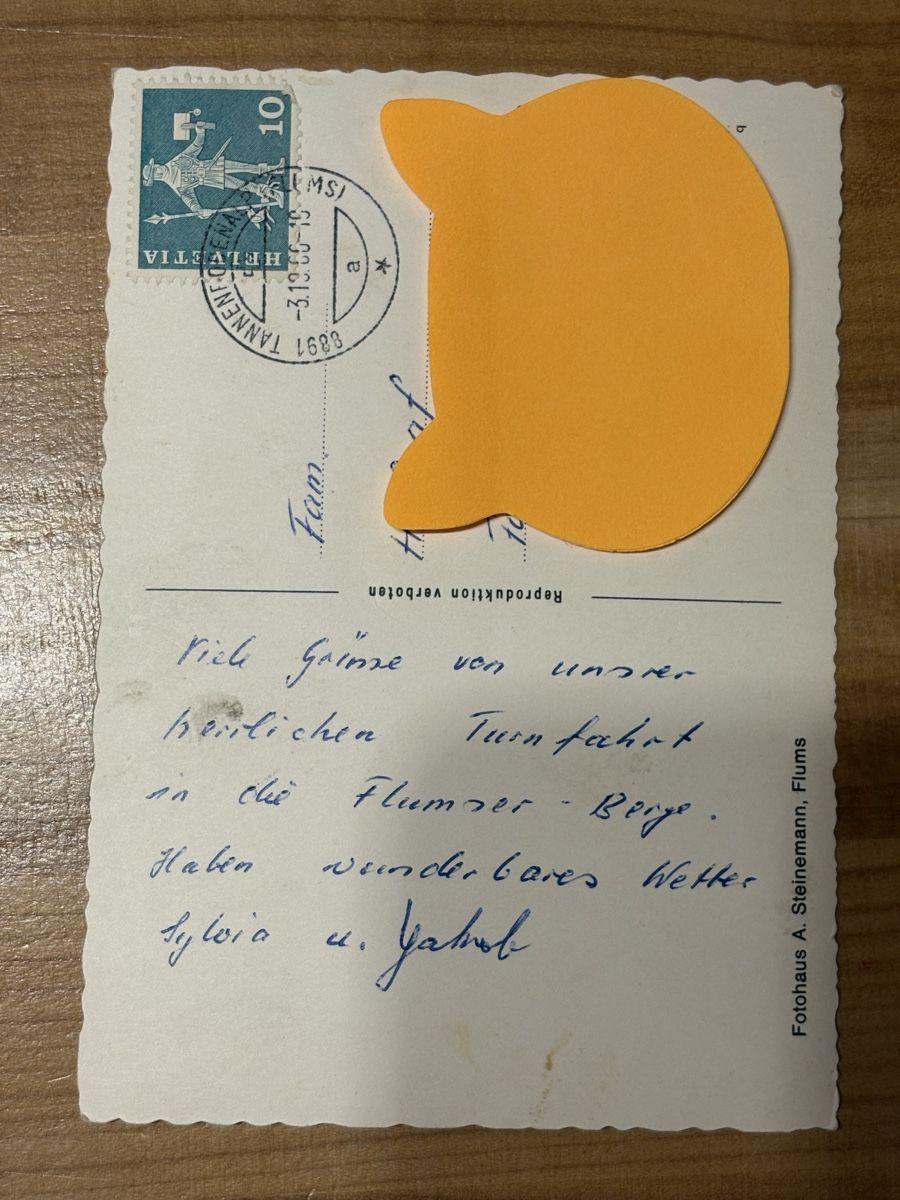 10
HELVETIA
8891 TANNENBODENALP (FLUMS)
a
Fam.
Reproduktion verboten
Viele Grüsse von unsrer
herrlichen Turnfahrt
in die Flumser-Berge.
Haben wunderbares Wetter
Sylvia u. Jakob
Fotohaus A. Steinemann, Flums